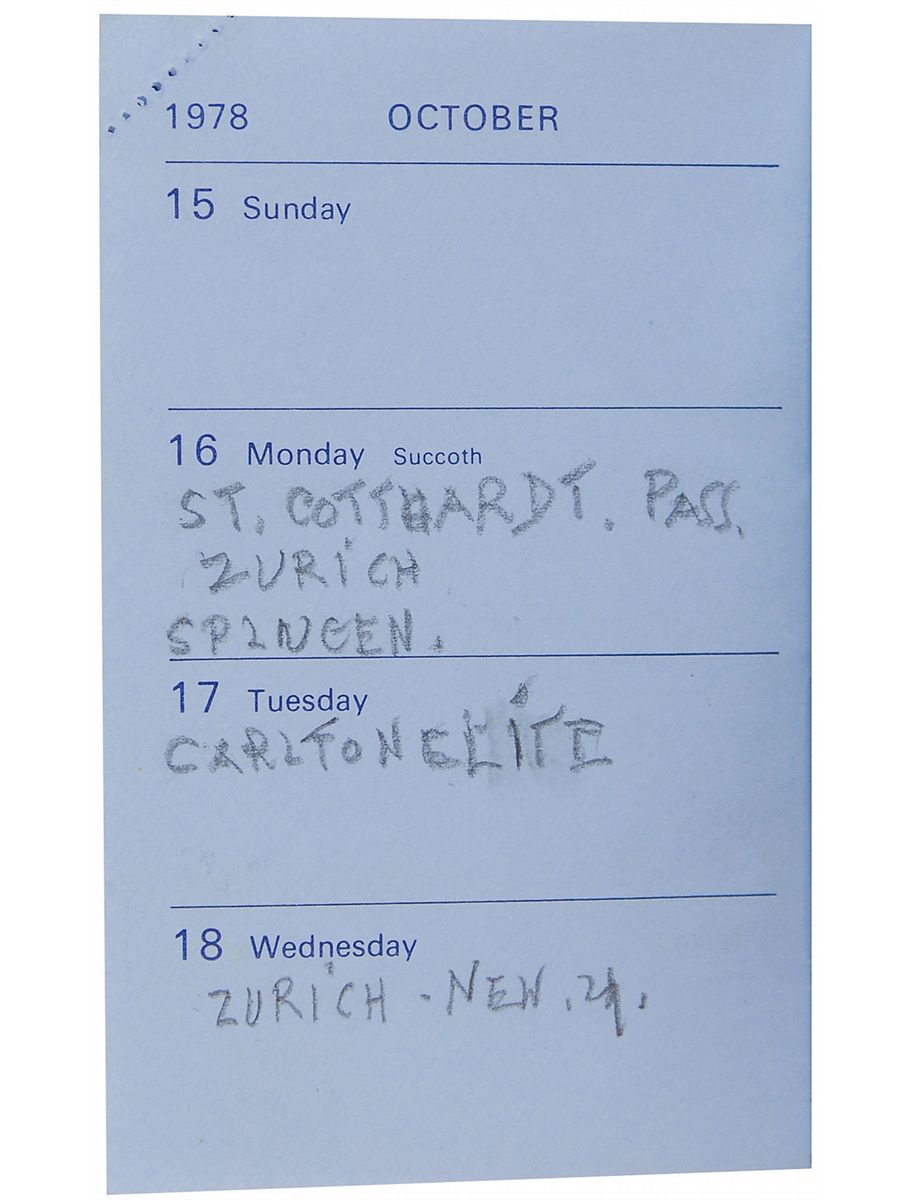 1978 OCTOBER
15 Sunday
16 Monday Succoth
ST. COTTHARDT. PASS.
ZURICH
SPLUGEN.
17 Tuesday
CARLTON ELITE
18 Wednesday
ZURICH - NEW.